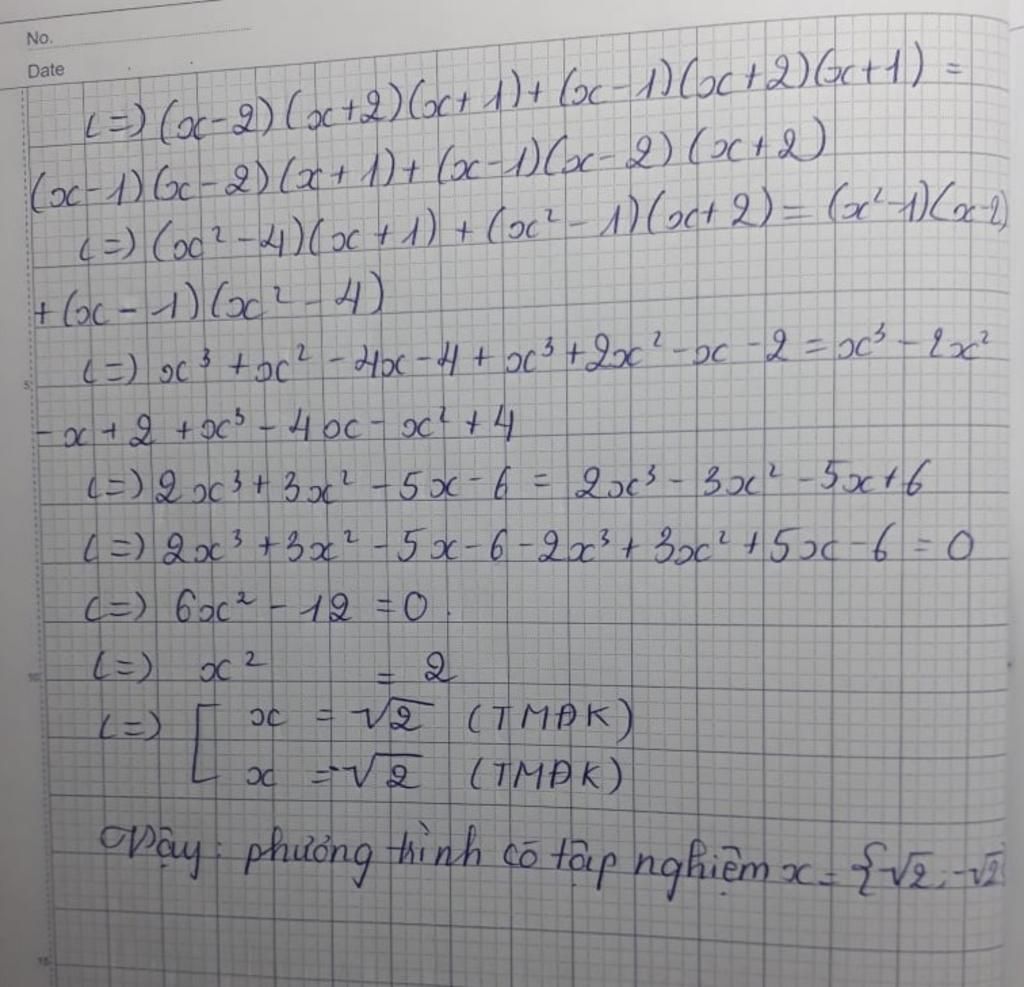 No.
Date
(=) (x-2)(x+2)(x+1)+(x-1)(x+2)(x+1) =
(x-1)(x-2)(x+1)+(x-1)(x-2)(x+2)
(=) (x²-4)(x+1)+(x²-1)(x+2)=(x²-1)(x-2)
+(x-1)(x²-4)
(=) x³+x²-4x-4+x³+2x²-x-2=x³-2x²
-x+2+x³-4x-x²+4
(=) 2x³+3x²-5x-6 = 2x³-3x²-5x+6
(=) 2x³+3x²-5x-6-2x³+3x²+5x-6=0
(=) 6x²-12=0
(=) x² = 2
(=) [ x = √2 (TMĐK)
x = -√2 (TMĐK)
Vậy: phương trình có tập nghiệm x = {√2; -√2
5
10
15